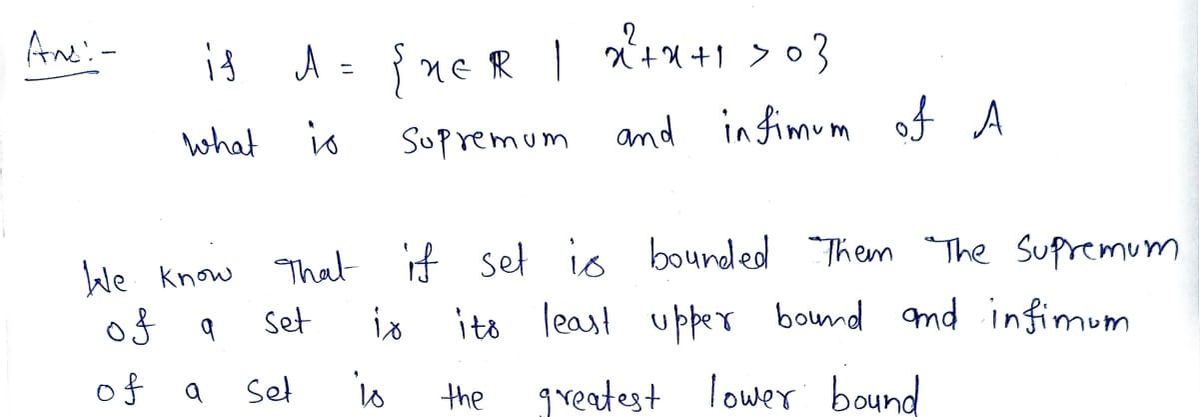 Ans:- if A = { x ∈ ℝ | x²+x+1 > 0 }
what is supremum and infimum of A
We know That if set is bounded Them The Supremum
of a set is its least upper bound and infimum
of a set is the greatest lower bound